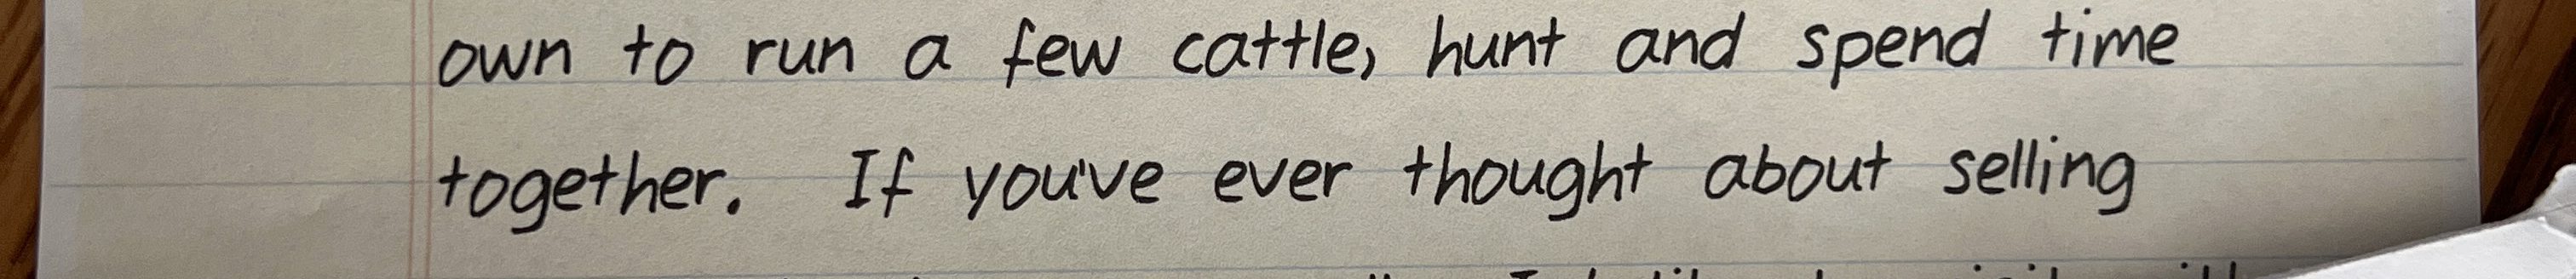 own to run a few cattle, hunt and spend time
together. If you've ever thought about selling